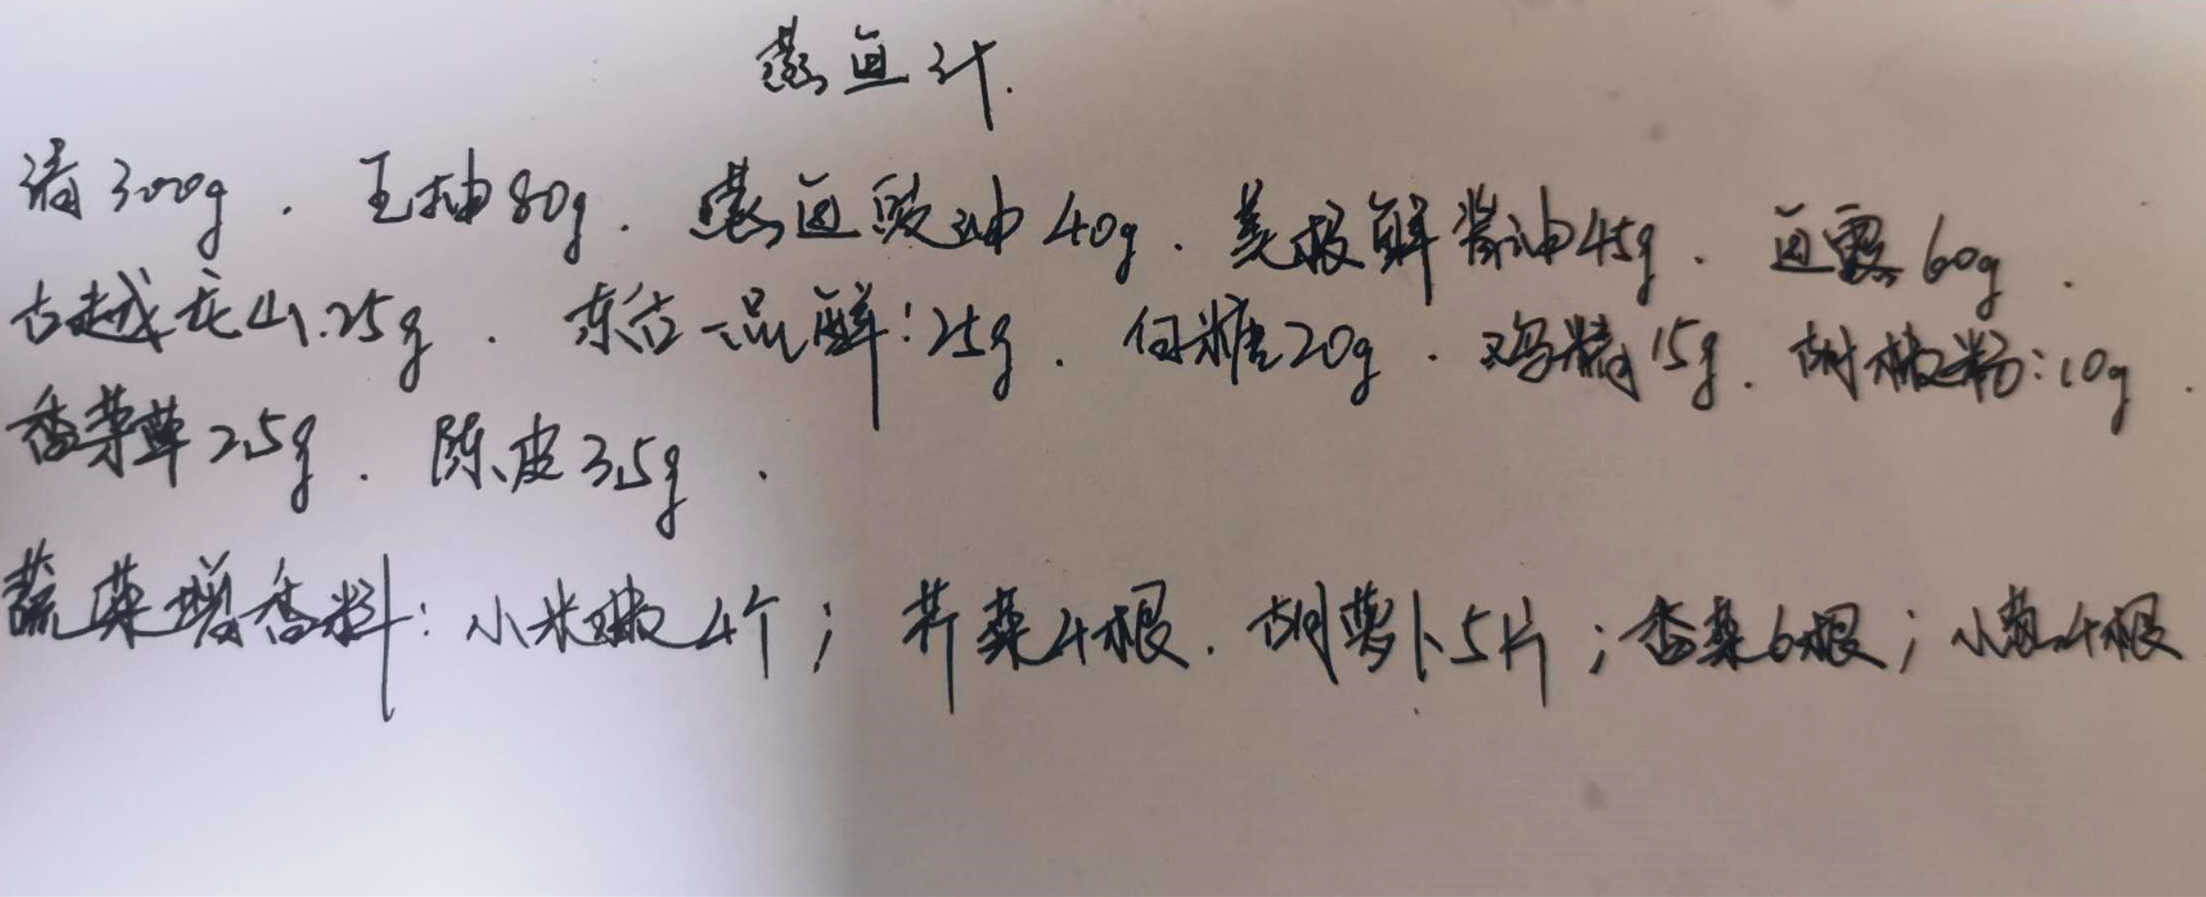 蒸鱼汁.
清300g. 王抽80g. 蒸鱼豉油40g. 美极鲜酱油45g. 鱼露60g.
古越龙山.25g. 东古一品鲜:25g. 白糖20g. 鸡精15g. 胡椒粉:10g.
香茅草2.5g. 陈皮3.5g.
蔬菜增香料:小米椒4个;芹菜4根.胡萝卜5片;香菜6根;小葱4根